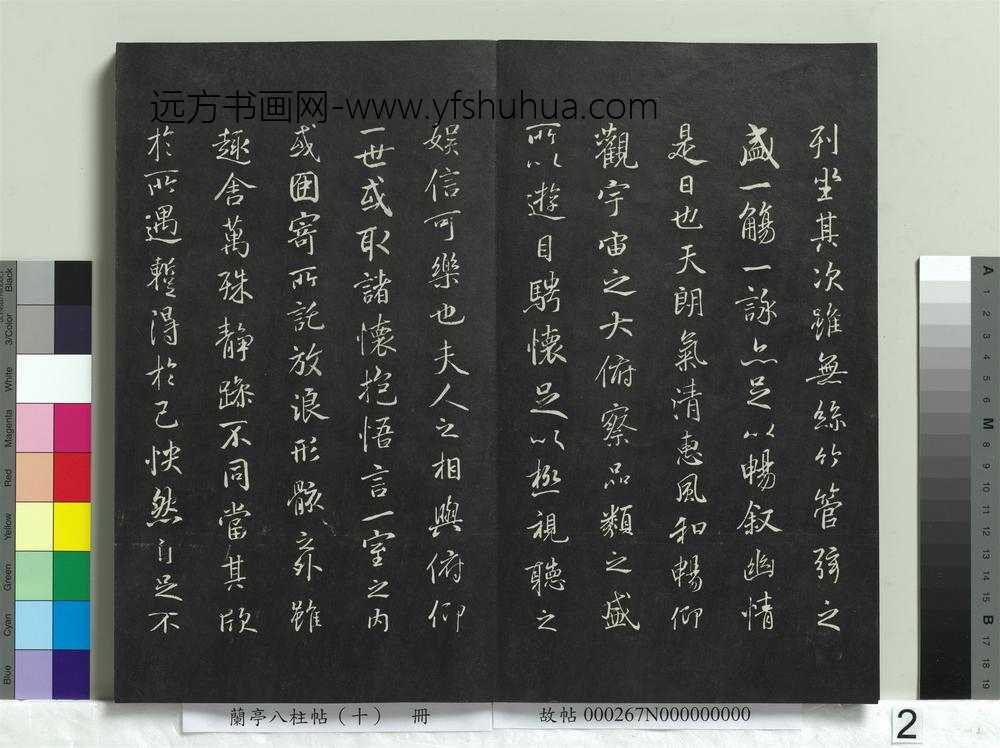 远方书画网-www.yfshuhua.com
列坐其次雖無絲竹管弦之
盛一觴一詠亦足以暢叙幽情
是日也天朗氣清惠風和暢仰
觀宇宙之大俯察品類之盛
所以遊目騁懷足以極視聽之
娛信可樂也夫人之相與俯仰
一世或取諸懷抱悟言一室之内
或因寄所託放浪形骸之外雖
趣舍萬殊静躁不同當其欣
於所遇蹔得於己怏然自足不
蘭亭八柱帖（十） 冊
故帖 000267N000000000
2
Black
3/Color
White
Magenta
Red
Yellow
Green
Cyan
Blue
A 1 2 3 4 5 6 M 8 9 10 11 12 13 14 15 B 17 18 19